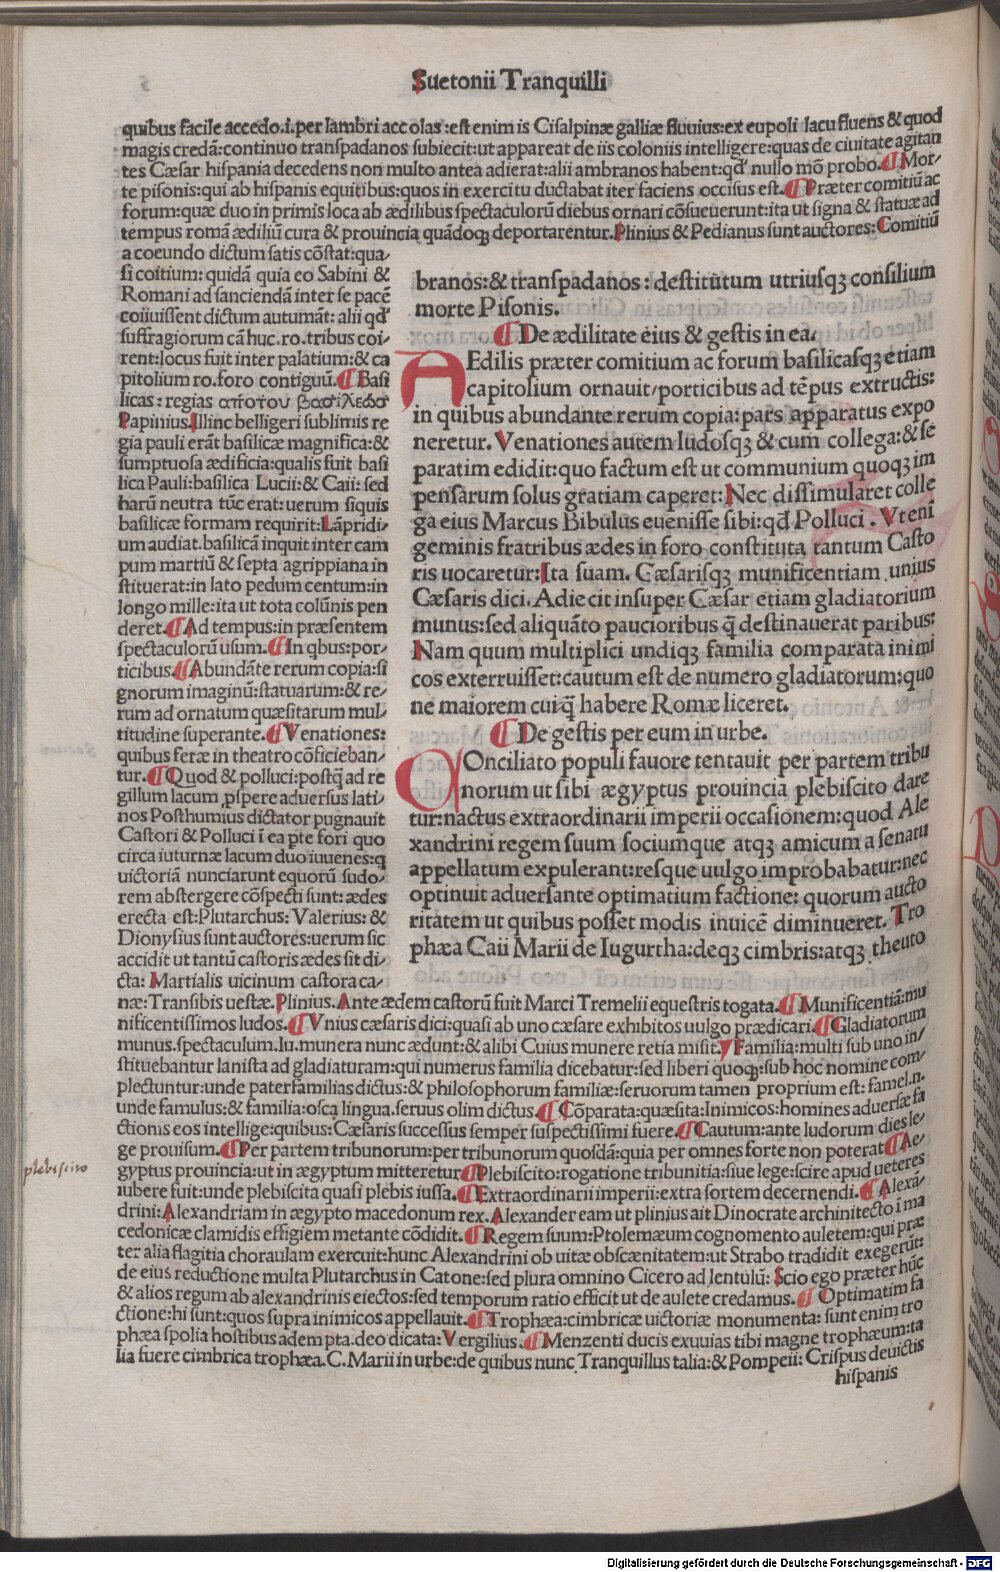 Suetonii Tranquilli
quibus facile accedo.i.per lambri accolas:est enim is Cisalpinæ galliæ fluuius:ex eupoli lacu fluens & quod
magis credã:continuo transpadanos subiecit:ut appareat de iis coloniis intelligere:quas de ciuitate agitan
tes Cæsar hispania decedens non multo antea adierat:alii ambranos habent:qđ nullo mõ probo. ¶ Mor-
te pisonis:qui ab hispanis equitibus:quos in exercitu ductabat iter faciens occisus est. ¶ Præter comitiũ ac
forum:quæ duo in primis loca ab ædilibus spectaculorũ diebus ornari cõsueuerunt:ita ut signa & statuæ ad
tempus romã ædiliũ cura & prouincia quãdoqꝫ deportarentur.Plinius & Pedianus sunt auctores:Comitiũ
a coeundo dictum satis cõstat:qua-
si coitium: quidã quia eo Sabini &
Romani ad sanciendã inter se pacẽ
coiiuissent dictum autumãt: alii qđ
suffragiorum cã huc.ro.tribus coi-
rent:locus fuit inter palatium:& ca
pitolium ro.foro contiguũ. ¶ Basi
licas: regias απο του βασιλεωσ
Papinius.Illinc belligeri sublimis re
gia pauli erãt basilicæ magnifica:&
sumptuosa ædificia:qualis fuit basi
lica Pauli:basilica Lucii:& Caii: sed
harũ neutra tũc erat: uerum siquis
basilicæ formam requirit:Lãpridi-
um audiat.basilicã inquit inter cam
pum martiũ & septa agrippiana in
stituerat:in lato pedum centum:in
longo mille:ita ut tota colũnis pen
deret. ¶ Ad tempus:in præsentem
spectaculorũ usum. ¶ In qbus:por-
ticibus. ¶ Abundãte rerum copia:si
gnorum imaginũ:statuarum:& re-
rum ad ornatum quæsitarum mul-
titudine superante. ¶ Venationes:
quibus feræ in theatro cõficieban-
tur. ¶ Quod & polluci:postq̃ ad re
gillum lacum ꝓspere aduersus lati-
nos Posthumius dictator pugnauit
Castori & Polluci ĩ ea ꝑte fori quo
circa iuturnæ lacum duo iuuenes:q
uictoriã nunciarunt equorũ sudo-
rem abstergere cõspecti sunt: ædes
erecta est:Plutarchus: Valerius: &
Dionysius sunt auctores:uerum sic
accidit ut tantũ castoris ædes sit di-
cta: Martialis uicinum castora ca-
branos:& transpadanos: destitutum utriusqꝫ consilium
morte Pisonis.
¶ De ædilitate eius & gestis in ea.
AEdilis præter comitium ac forum basilicasqꝫ etiam
capitolium ornauit/porticibus ad tẽpus extructis:
in quibus abundante rerum copia: pars apparatus expo
neretur. Venationes autem ludosqꝫ & cum collega:& se
paratim edidit:quo factum est ut communium quoqꝫ im
pensarum solus gratiam caperet: Nec dissimularet colle
ga eius Marcus Bibulus euenisse sibi:qđ Polluci . Vt eni
geminis fratribus ædes in foro constituta tantum Casto
ris uocaretur:Ita suam. Cæsarisqꝫ munificentiam unius
Cæsaris dici. Adiecit insuper Cæsar etiam gladiatorium
munus:sed aliquãto paucioribus q̃ destinauerat paribus:
Nam quum multiplici undiqꝫ familia comparata inimi
cos exterruisset:cautum est de numero gladiatorum:quo
ne maiorem cuiq̃ habere Romæ liceret.
¶ De gestis per eum in urbe.
COnciliato populi fauore tentauit per partem tribu
norum ut sibi ægyptus prouincia plebiscito dare
tur:nactus extraordinarii imperii occasionem:quod Ale
xandrini regem suum sociumque atqꝫ amicum a senatu
appellatum expulerant:resque uulgo improbabatur:nec
optinuit aduersante optimatium factione: quorum aucto
ritatem ut quibus posset modis inuicẽ diminueret. Tro
phæa Caii Marii de Iugurtha:deqꝫ cimbris:atqꝫ theuto
næ:Transibis uestæ. Plinius. Ante ædem castorũ fuit Marci Tremelii equestris togata. ¶ Munificentiã:mu
nificentissimos ludos. ¶ Vnius cæsaris dici:quasi ab uno cæsare exhibitos uulgo prædicari. ¶ Gladiatorum
munus.spectaculum.Iu.munera nunc ædunt:& alibi Cuius munere retia misit. ¶ Familia:multi sub uno in-
stituebantur lanista ad gladiaturam:qui numerus familia dicebatur:sed liberi quoqꝫ:sub hoc nomine com-
plectuntur:unde paterfamilias dictus:& philosophorum familiæ:seruorum tamen proprium est: famel.n.
unde famulus:& familia:osca lingua.seruus olim dictus. ¶ Cõparata:quæsita:Inimicos:homines aduersæ fa
ctionis eos intellige:quibus:Cæsaris successus semper suspectissimi fuere. ¶ Cautum:ante ludorum dies le-
ge prouisum. ¶ Per partem tribunorum:per tribunorum quosdã:quia per omnes forte non poterat ¶ Ae-
gyptus prouincia:ut in ægyptum mitteretur ¶ Plebiscito:rogatione tribunitia:siue lege:scire apud ueteres
plebiscito
iubere fuit:unde plebiscita quasi plebis iussa. ¶ Extraordinarii imperii:extra sortem decernendi. ¶ Alexã-
drini:Alexandriam in ægypto macedonum rex. Alexander eam ut plinius ait Dinocrate architecto ĩ ma
cedonicæ clamidis effigiem metante cõdidit. ¶ Regem suum:Ptolemæum cognomento auletem:qui præ
ter alia flagitia choraulam exercuit:hunc Alexandrini ob uitæ obscænitatem:ut Strabo tradidit exegerũt:
de eius reductione multa Plutarchus in Catone:sed plura omnino Cicero ad lentulũ: Scio ego præter hũc
& alios regum ab alexandrinis eiectos:sed temporum ratio efficit ut de aulete credamus. ¶ Optimatim fa
ctione:hi sunt:quos supra inimicos appellauit. ¶ Trophæa:cimbricæ uictoriæ monumenta: sunt enim tro
phæa spolia hostibus adempta.deo dicata: Vergilius. ¶ Menzenti ducis exuuias tibi magne trophæum:ta
lia fuere cimbrica trophæa.C.Marii in urbe:de quibus nunc Tranquillus talia:& Pompeii: Crispus deuictis
hispanis
Digitalisierung gefördert durch die Deutsche Forschungsgemeinschaft - DFG